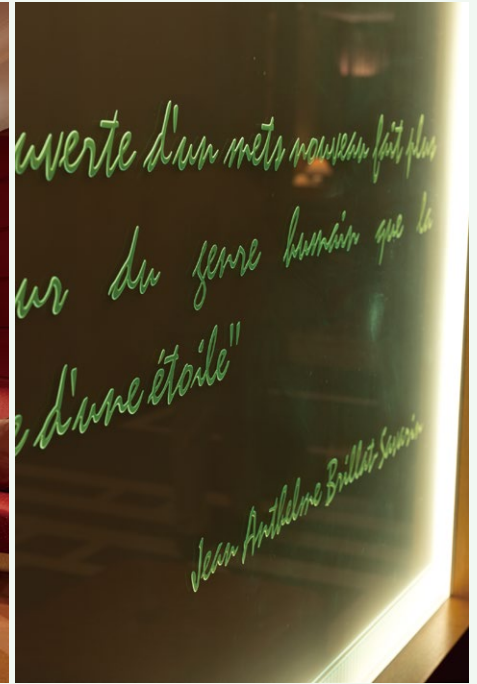 uverte d'un mets nouveau fait plus
ur du genre humain que la
e d'une étoile"
Jean Anthelme Brillat-Savarin